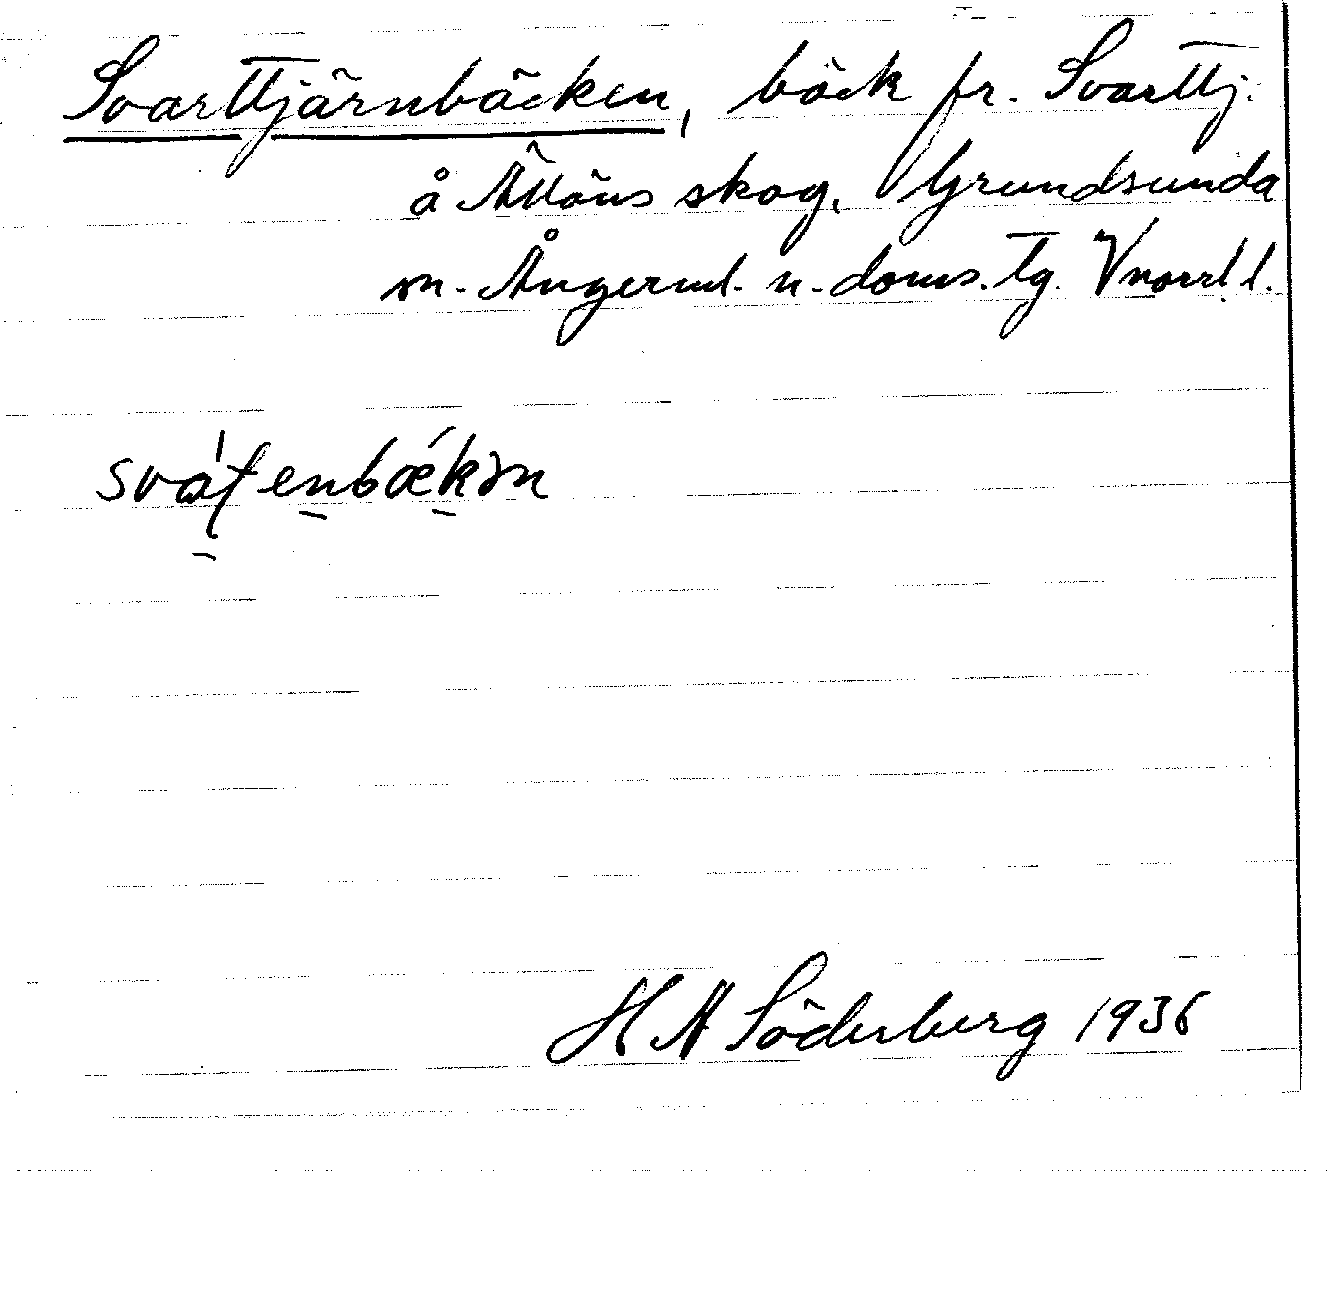 Svarttjärnbäcken, bäck fr. Svarttj.
å Ällöns skog, Grundsunda
sn. Ångerml. n. doms. Tg. Vnorrl l.
svaʹtenbækən
H A Söderberg 1936